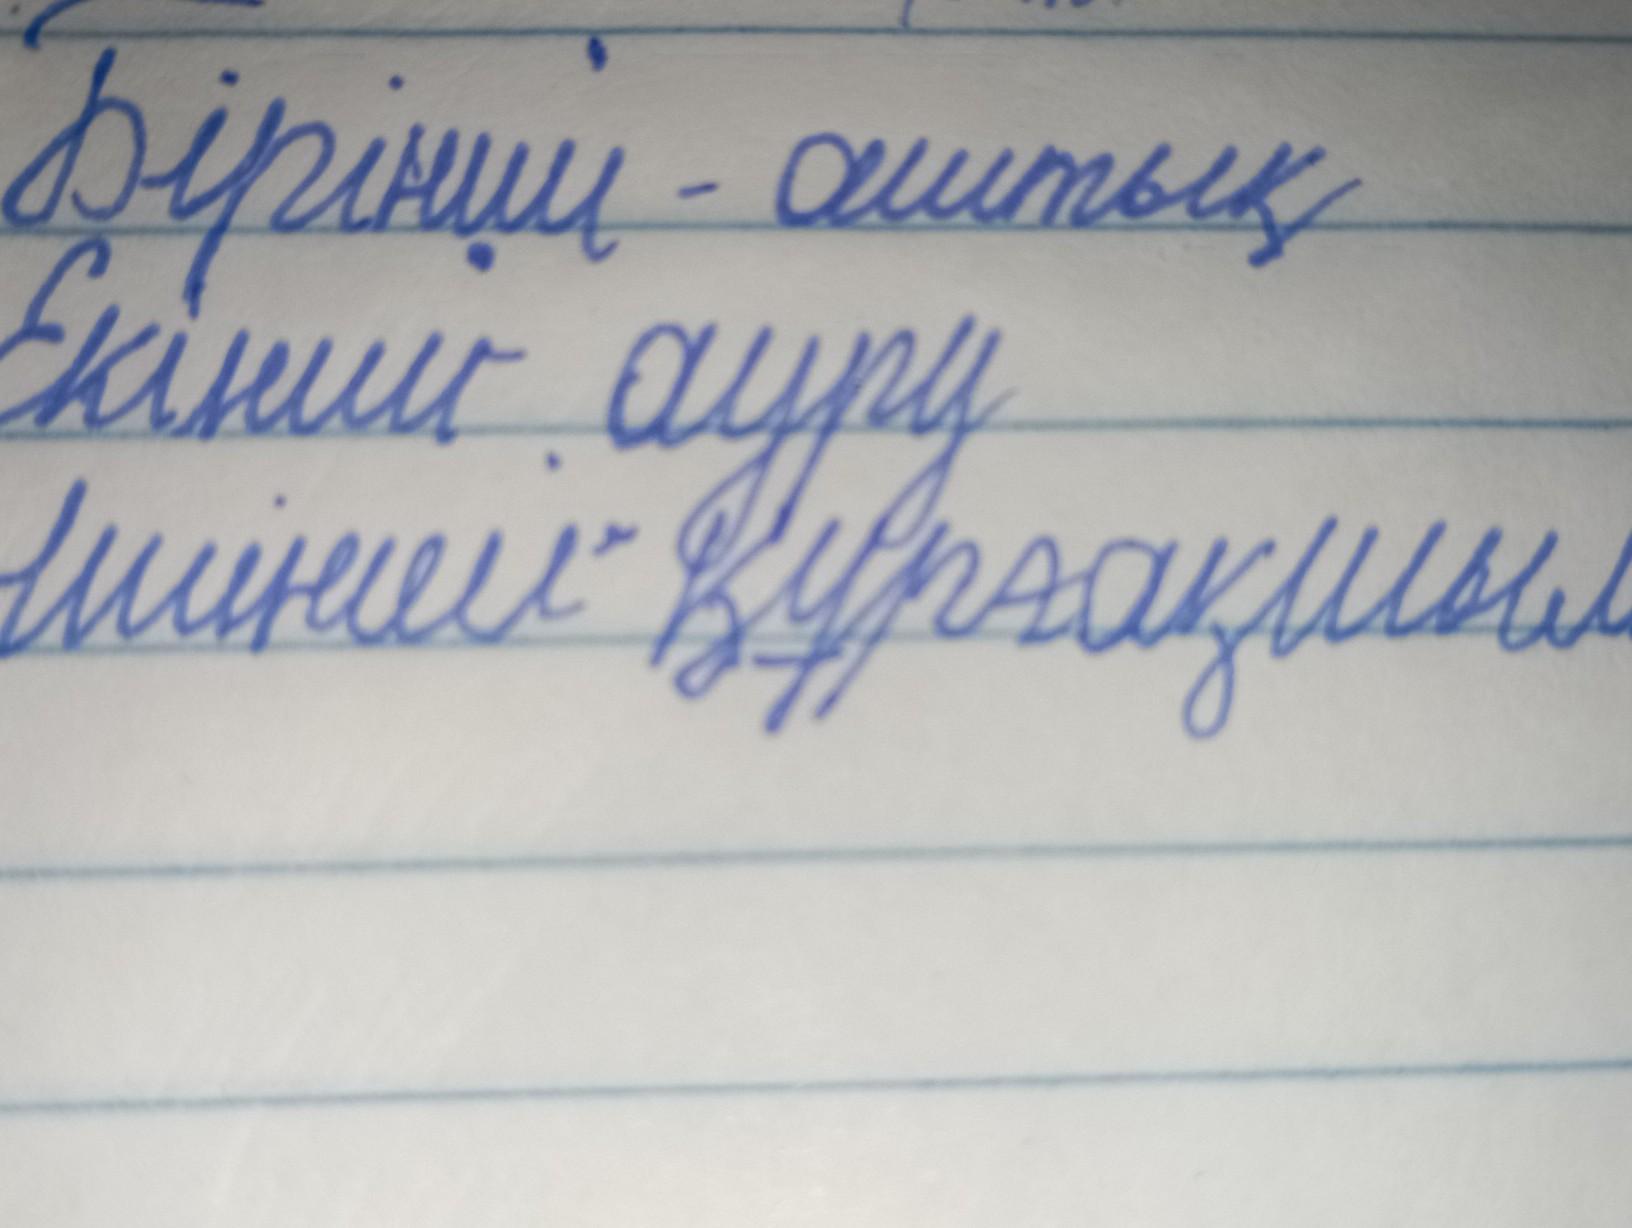 Бірінші - аштық
Екінші - ауру
шінші - Құрғақшыл